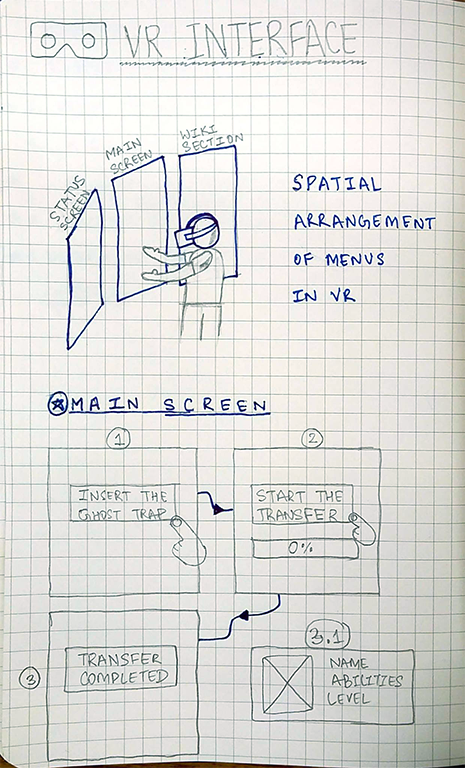 VR INTERFACE
STATUS
SCREEN
MAIN
SCREEN
WIKI
SECTION
SPATIAL
ARRANGEMENT
OF MENUS
IN VR
MAIN SCREEN
1
2
INSERT THE
GHOST TRAP
START THE
TRANSFER
0%
3
TRANSFER
COMPLETED
3.1
NAME
ABILITIES
LEVEL